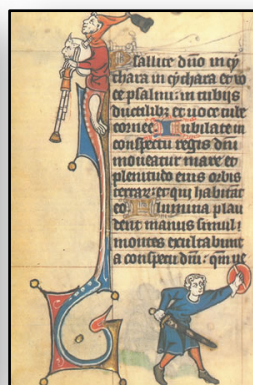 Psallite dño in cy
thara in cythara et vo
ce psalmi: in tubis
ductilibȝ et voce tube
cornee. Iubilate in
conspectu regis dñi
moveatur mare et
plenitudo eius orbis
terrarȝ et qui habitāt
eo. Flumina plau
dent manus simul
montes exultabunt
a conspectu dñi: qm̄ ve